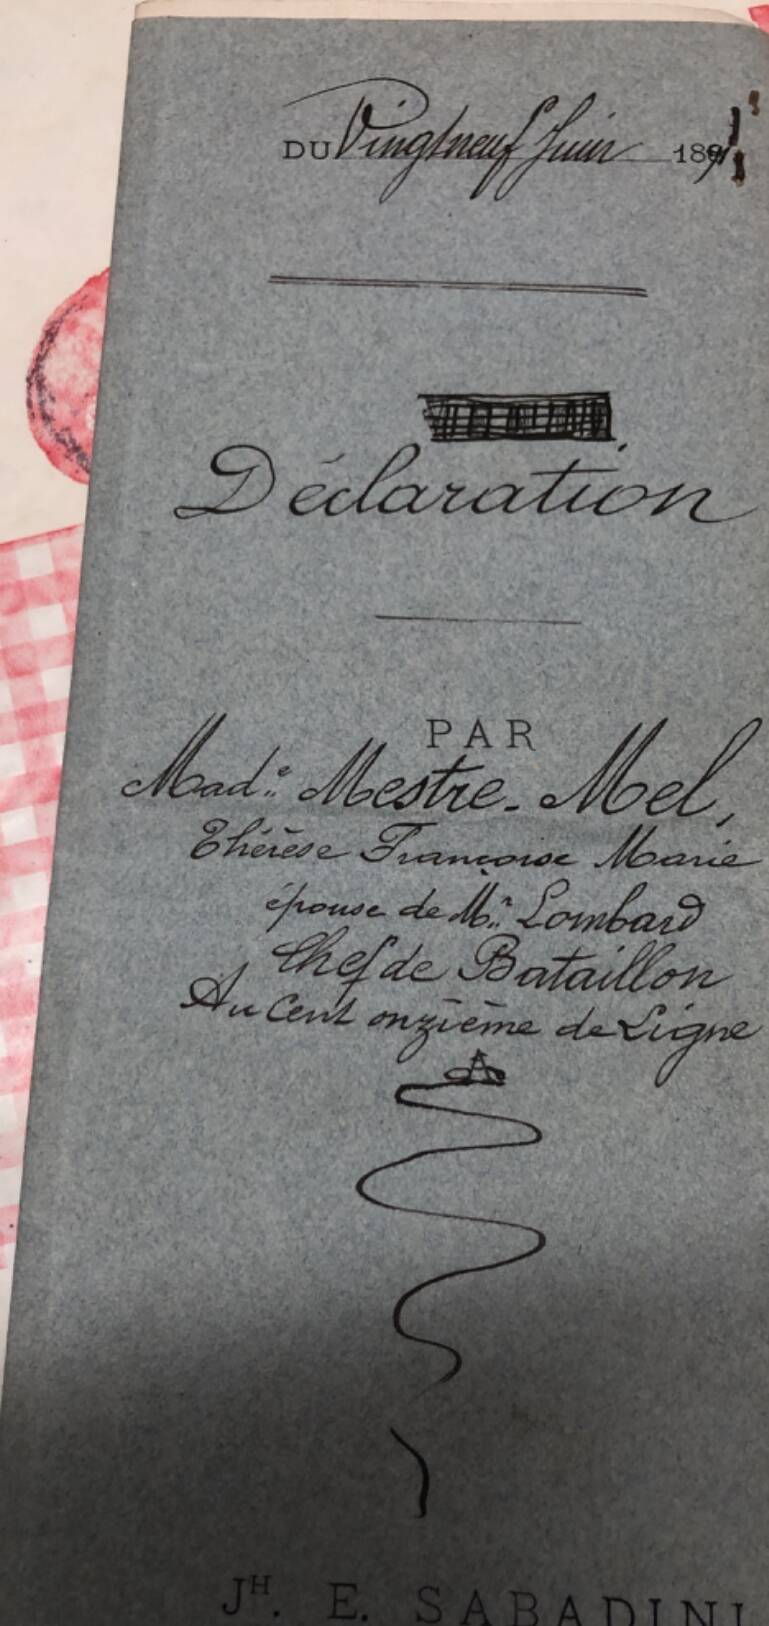 DU Vingtneuf Juin 189
Déclaration
PAR
Made. Mestre-Mel,
Thérèse Françoise Marie
épouse de Mr. Lombard
Chef de Bataillon
Au Cent onzième de Ligne
JH. E. SABADINI